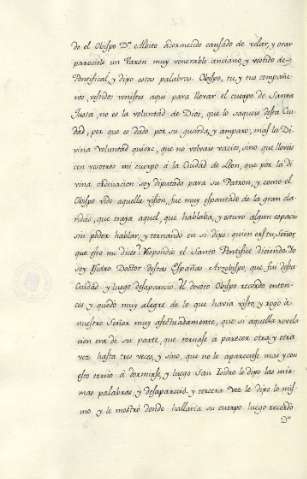 do el Obispo Dⁿ Albito adormecido cansado de velar, y orar
pareciole un Varon muy venerable anciano, y vestido de
Pontifical, y dijo estas palabras. Obispo, tu, y tus compañe-
ros, vosotros venistes aqui para llevar el cuerpo de Santa
Justa no es la voluntad de Dios, que lo saqueis desta Ciu-
dad, por que es dado por su guarda, y amparo, mas la Di-
vina Voluntad quiere, que no volvais vacios, sino que lleveis
con vosotros mi cuerpo à la Ciudad de Leon, que por la di
vina ordenacion soy diputado para su Patron, y como el
Obispo vido aquella vision, fue muy espantado de la gran cla-
ridad, que traja aquel, que hablaba, y estuvo algun espacio
sin poder hablar, y tornando en si dijo: quien eres tu, Señor,
que esto me dices? Respondio el Santo Pontifice diciendo Yo
soy Isidro Doctor destas Españas Arzobispo, que fui desta
Ciudad y luego desaparecio. El devoto Obispo recordo enton-
ces y quedo muy alegre de lo que havia visto, y rogò à
nuestro Señor muy afectuosamente, que si aquella revela
cion era de su parte, que tornase à parecer otra, y otra
vez hasta tres veces, y sino que no le apareciese mas, y con
esto torno à dormirse, y luego San Isidro le dijo las mis-
mas palabras, y desaparecio, y tercera vez le dijo lo mis-
mo y le mostrò donde hallaria su cuerpo luego recordò
Dⁿ